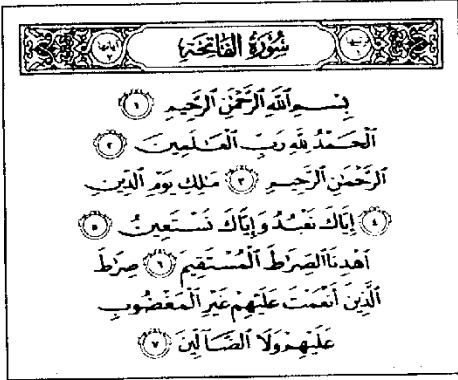 ترتيبها ١ سُورَةُ الفَاتِحَةِ آياتها ٧
بِسْمِ ٱللَّهِ ٱلرَّحْمَٰنِ ٱلرَّحِيمِ ١
ٱلْحَمْدُ لِلَّهِ رَبِّ ٱلْعَٰلَمِينَ ٢
ٱلرَّحْمَٰنِ ٱلرَّحِيمِ ٣ مَٰلِكِ يَوْمِ ٱلدِّينِ
٤ إِيَّاكَ نَعْبُدُ وَإِيَّاكَ نَسْتَعِينُ ٥
ٱهْدِنَا ٱلصِّرَٰطَ ٱلْمُسْتَقِيمَ ٦ صِرَٰطَ
ٱلَّذِينَ أَنْعَمْتَ عَلَيْهِمْ غَيْرِ ٱلْمَغْضُوبِ
عَلَيْهِمْ وَلَا ٱلضَّآلِّينَ ٧